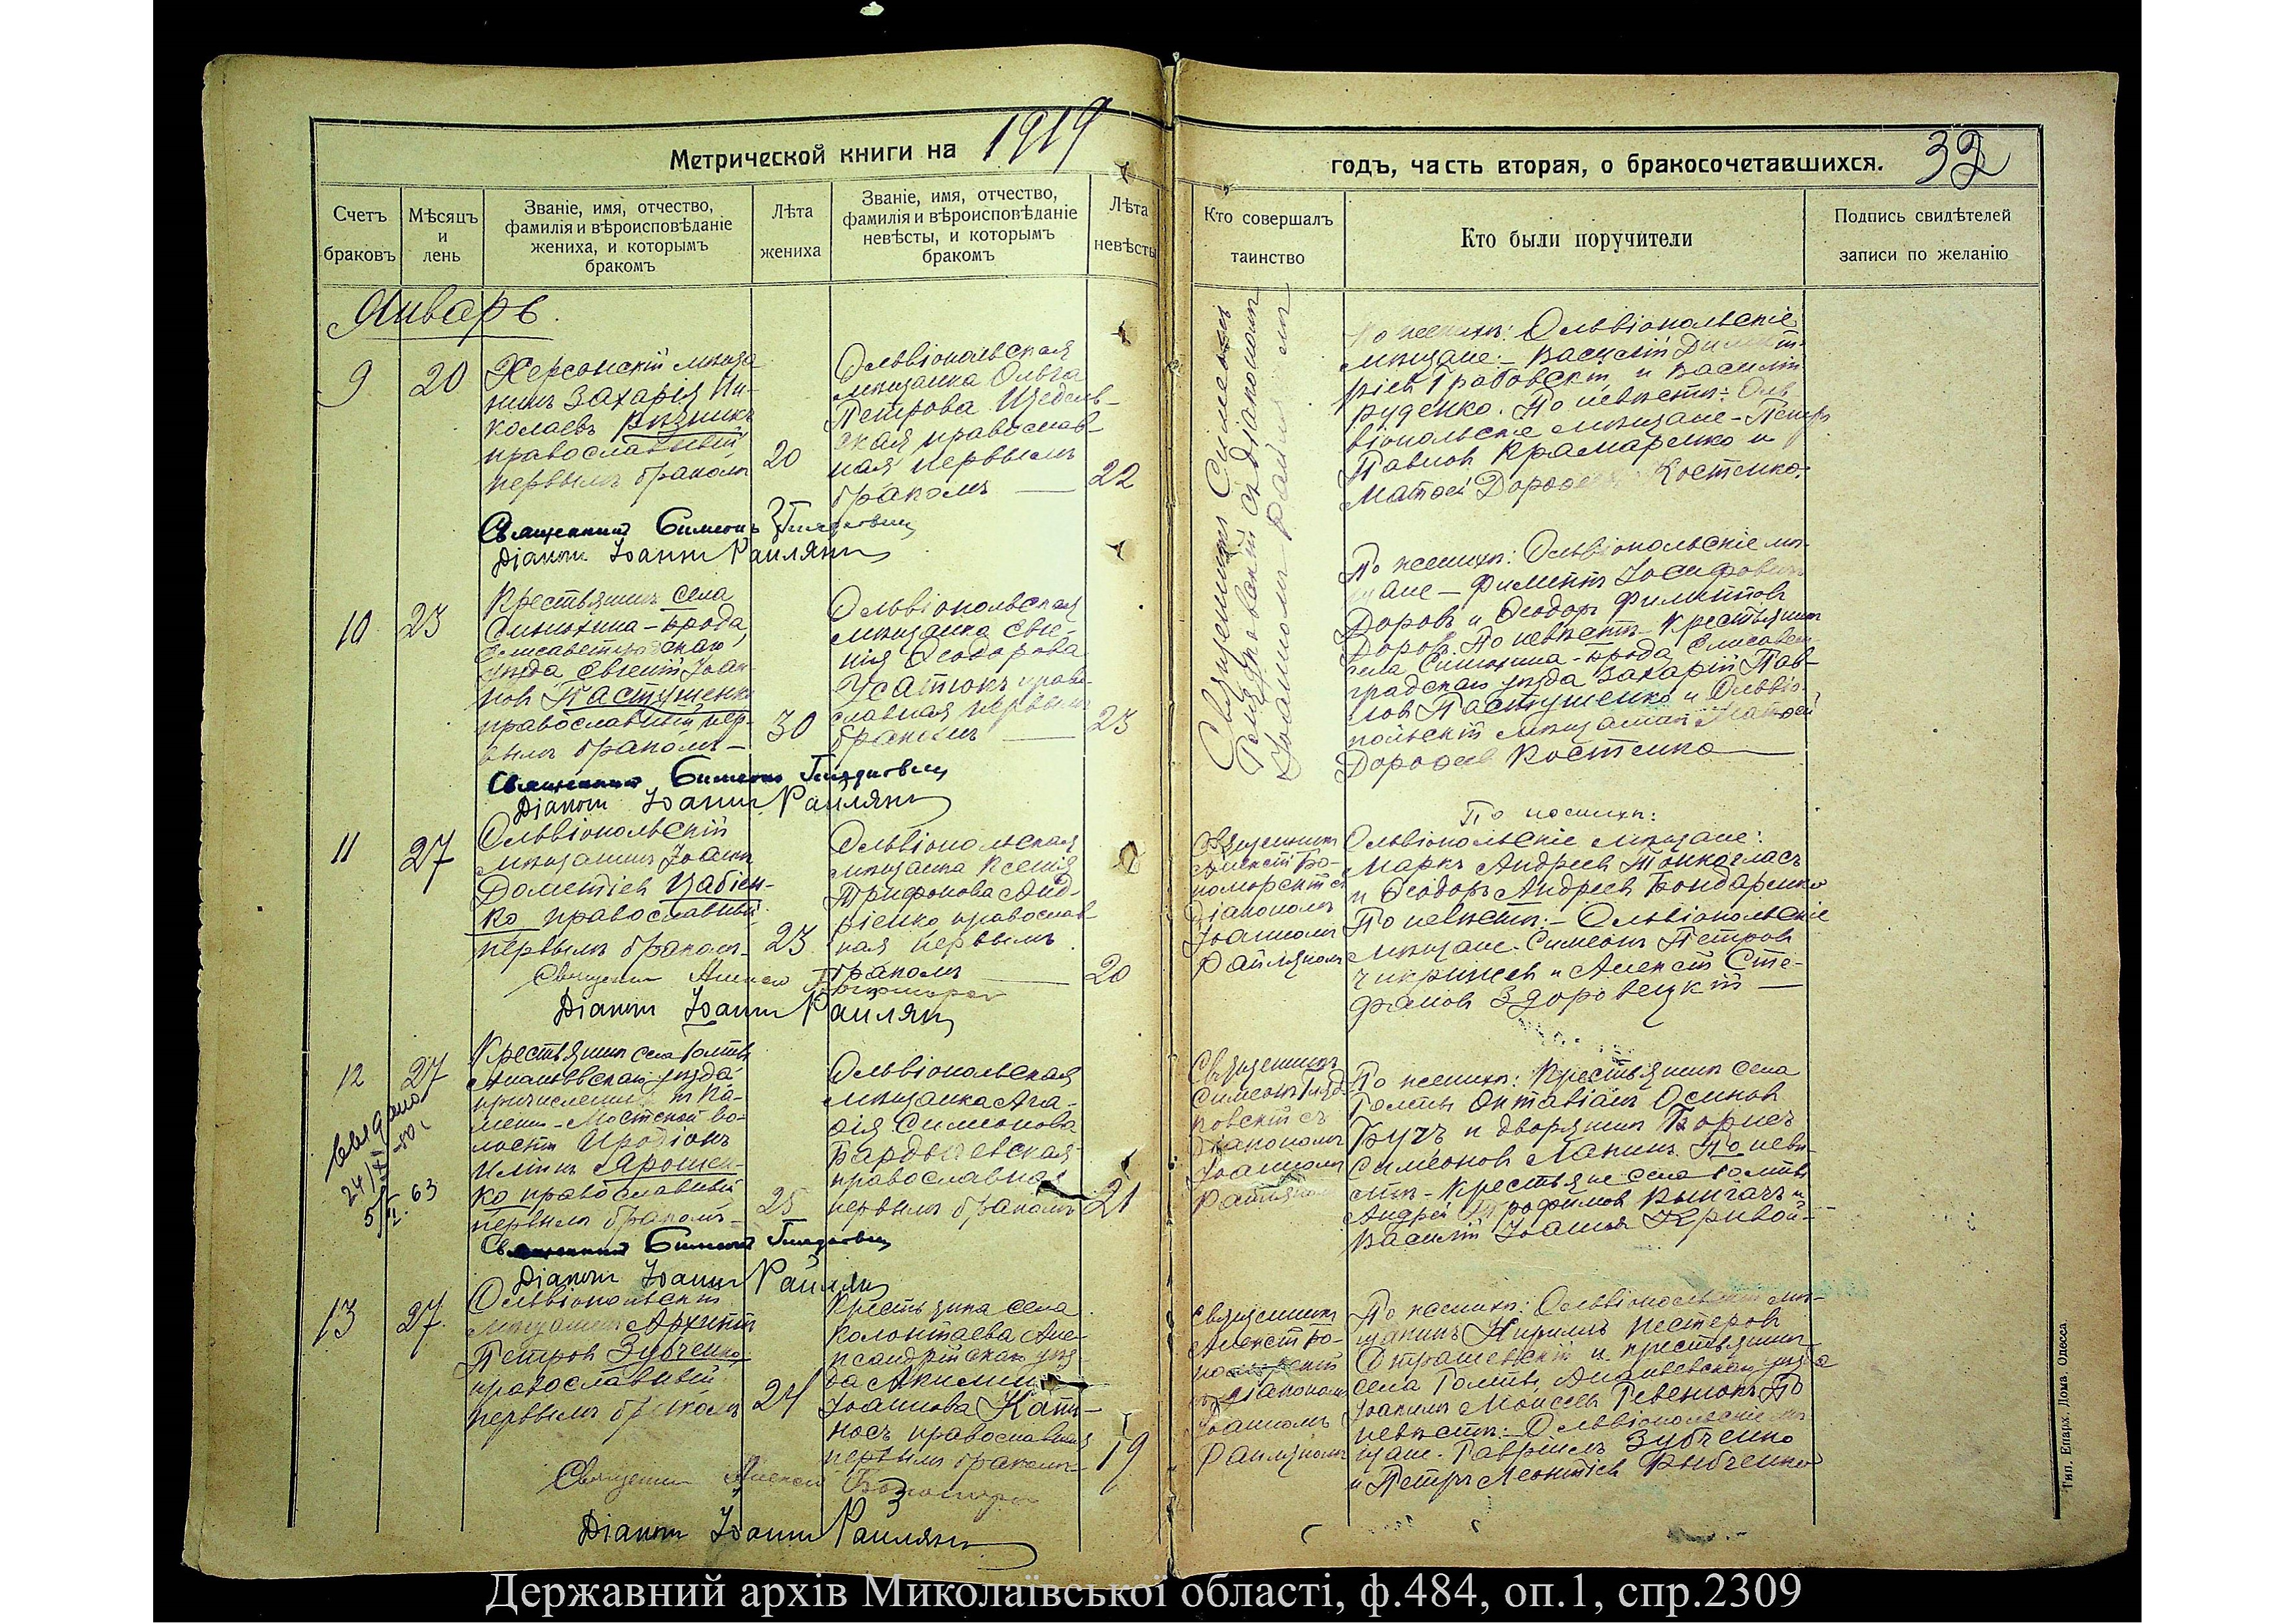 Метрической книги на 1919
годъ, часть вторая, о бракосочетавшихся. 32
Счетъ
браковъ
Мѣсяцъ
и
день
Званіе, имя, отчество,
фамилія и вѣроисповѣданіе
жениха, и которымъ
бракомъ
Лѣта
жениха
Званіе, имя, отчество,
фамилія и вѣроисповѣданіе
невѣсты, и которымъ
бракомъ
Лѣта
невѣсты
Кто совершалъ
таинство
Кто были поручители
Подпись свидѣтелей
записи по желанію
Январь.
9
20
Херсонскій мѣща
нинъ Захарія Ни-
колаевъ Рѣзникъ
православный
первымъ бракомъ
20
Ольвіопольская
мѣщанка Ольга
Петрова
православ-
ная первымъ
бракомъ
22
По женихѣ: Ольвіопольскіе
мѣщане: Василій Димит-
ріевъ Грабовскій и Василій
Руденко. По невѣстѣ: Оль
віопольскіе мѣщане - Петръ
Павловъ Крамаренко и
Матфей Костенко.
Священникъ Симеонъ
Діаконъ Іоаннъ Раилянъ
10
23
Крестьянинъ села
Синюхина-брода,
Елисаветградскаго
уѣзда Евгеній Іоан-
новъ Пастушенко
православный пер-
вымъ бракомъ
30
Ольвіопольская
мѣщанка Евге-
нія Ѳеодорова
Усатюкъ право-
славная первымъ
бракомъ
23
По женихѣ: Ольвіопольскіе мѣ-
щане - Филиппъ Іосифовъ
Доровъ и Ѳеодоръ Филипповъ
Доровъ. По невѣстѣ - Крестьянинъ
села Синюхина-брода Елисавет
градскаго уѣзда Захарій Пав-
ловъ Пастушенко и Ольвіо-
польскій мѣщанинъ Матфей
Дороѳеевъ Костенко
Священникъ Симеонъ
Діаконъ Іоаннъ Раилянъ
11
27
Ольвіопольскій
мѣщанинъ Іоаннъ
Дометіевъ Цабіен-
ко православный
первымъ бракомъ
23
Ольвіопольская
мѣщанка Ксенія
Трифонова Анд-
ріенко православ
ная первымъ
бракомъ
20
Священникъ
Алексій Бо-
поморскій съ
діакономъ
Іоанномъ
Раиляномъ
По женихѣ:
Ольвіопольскіе мѣщане:
Маркъ Андреевъ Тонкогласъ
и Ѳеодоръ Андреевъ Бондаренко
По невѣстѣ: - Ольвіопольскіе
мѣщане - Симеонъ Петровъ
и Алексій Сте-
фановъ Здоровецкій
Священникъ Алексій
Діаконъ Іоаннъ Раилянъ
12
27
Выдано
63
Крестьянинъ села Голты
Ананьевскаго уѣзда
причисленный къ Ка-
менно-Мостской во-
лости Иродіонъ
Ильинъ Ярошен-
ко православный
первымъ бракомъ
25
Ольвіопольская
мѣщанка Ага-
ѳія Симеонова
Бардычевская
православная
первымъ бракомъ
21
Священникъ
Симеонъ
съ
діакономъ
Іоанномъ
Раиляномъ
По женихѣ: Крестьянинъ села
Голты Октавіанъ Осиповъ
Бучъ и дворянинъ Борисъ
Симеоновъ Лапинъ. По невѣ-
стѣ - Крестьяне села Голты
Андрей Трофимовъ и
Василій Іоанновъ Кривой
Священникъ Симеонъ
Діаконъ Іоаннъ Раилянъ
13
27
Ольвіопольскій
мѣщанинъ Архиппъ
Петровъ Зубченко
православный
первымъ бракомъ
24
Крестьянка села
Колонтаева Але-
ксандрійскаго уѣз-
да Акилина
Іоаннова
православная
первымъ бракомъ
19
Священникъ
Алексій
съ діакономъ
Іоанномъ
Раиляномъ
По женихѣ: Ольвіопольскій мѣ-
щанинъ Кириллъ Нестеровъ
и крестьянинъ
села Голты Ананьевскаго уѣзда
Іоакимъ Моисеевъ Ревенюкъ. По
невѣстѣ: Ольвіопольскіе мѣ-
щане - Гавріилъ Зубченко
и Петръ Леонтіевъ Рыбченко
Священникъ Алексій
Діаконъ Іоаннъ Раилянъ
Тип. Епарх. Дома Одесса.
Державний архів Миколаївської області, ф.484, оп.1, спр.2309